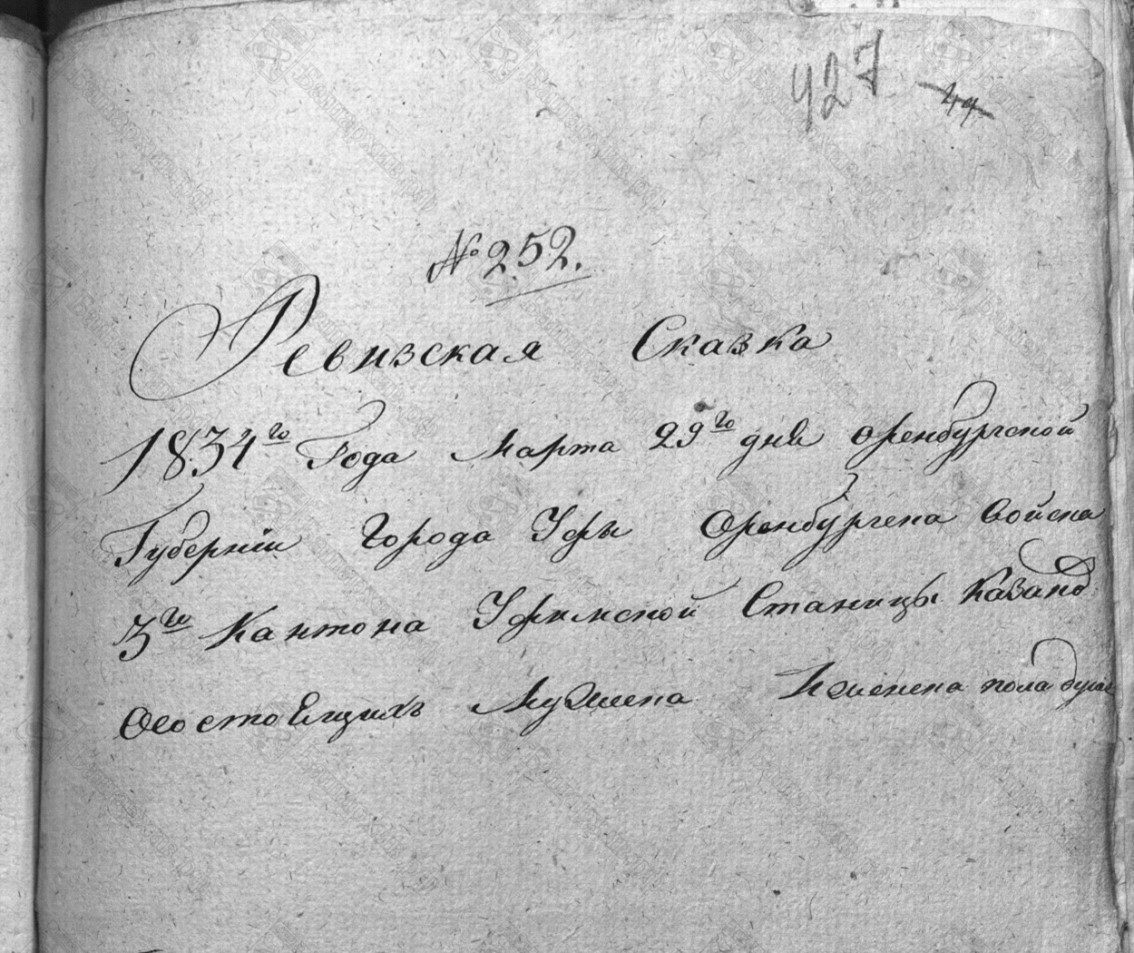 427 44
№ 252.
Ревизская Сказка
1834го Года Марта 29го дня Оренбургской
Губерніи Города Уфы Оренбургска Войска
3го Кантона Уфимской Станицы Казако
Осостоящихъ Мужеска Женска пола душ